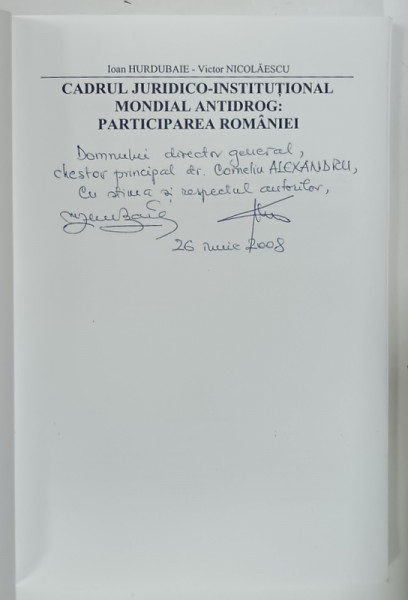 Ioan HURDUBAIE - Victor NICOLĂESCU
CADRUL JURIDICO-INSTITUȚIONAL
MONDIAL ANTIDROG:
PARTICIPAREA ROMÂNIEI
Domnului director general,
chestor principal dr. Corneliu ALEXANDRU,
Cu stima și respectul autorilor,
26 iunie 2008